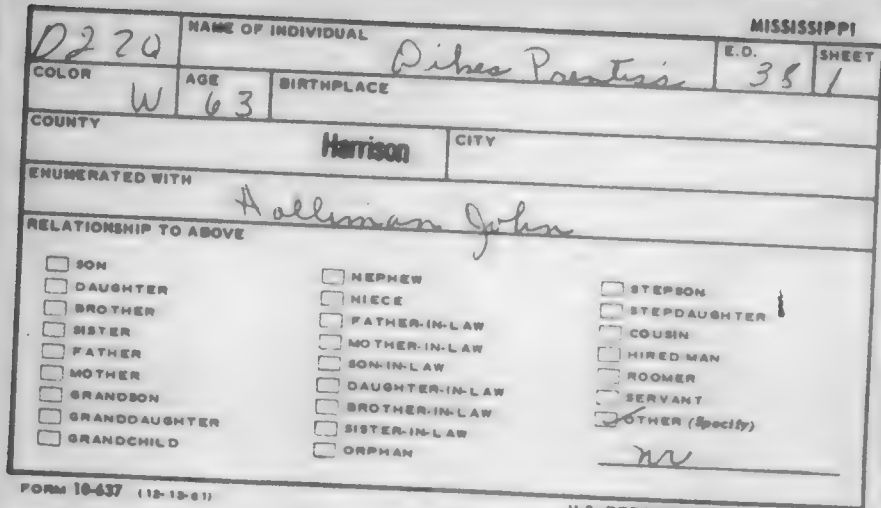 MISSISSIPPI
D220 NAME OF INDIVIDUAL Dikes Prentiss E.D. 38 SHEET 1
COLOR W AGE 63 BIRTHPLACE
COUNTY Harrison CITY
ENUMERATED WITH Holliman John
RELATIONSHIP TO ABOVE
SON
DAUGHTER
BROTHER
SISTER
FATHER
MOTHER
GRANDSON
GRANDDAUGHTER
GRANDCHILD
NEPHEW
NIECE
FATHER-IN-LAW
MOTHER-IN-LAW
SON-IN-LAW
DAUGHTER-IN-LAW
BROTHER-IN-LAW
SISTER-IN-LAW
ORPHAN
STEPSON
STEPDAUGHTER
COUSIN
HIRED MAN
ROOMER
SERVANT
OTHER (Specify)
NR
FORM 10-637 (12-13-61)